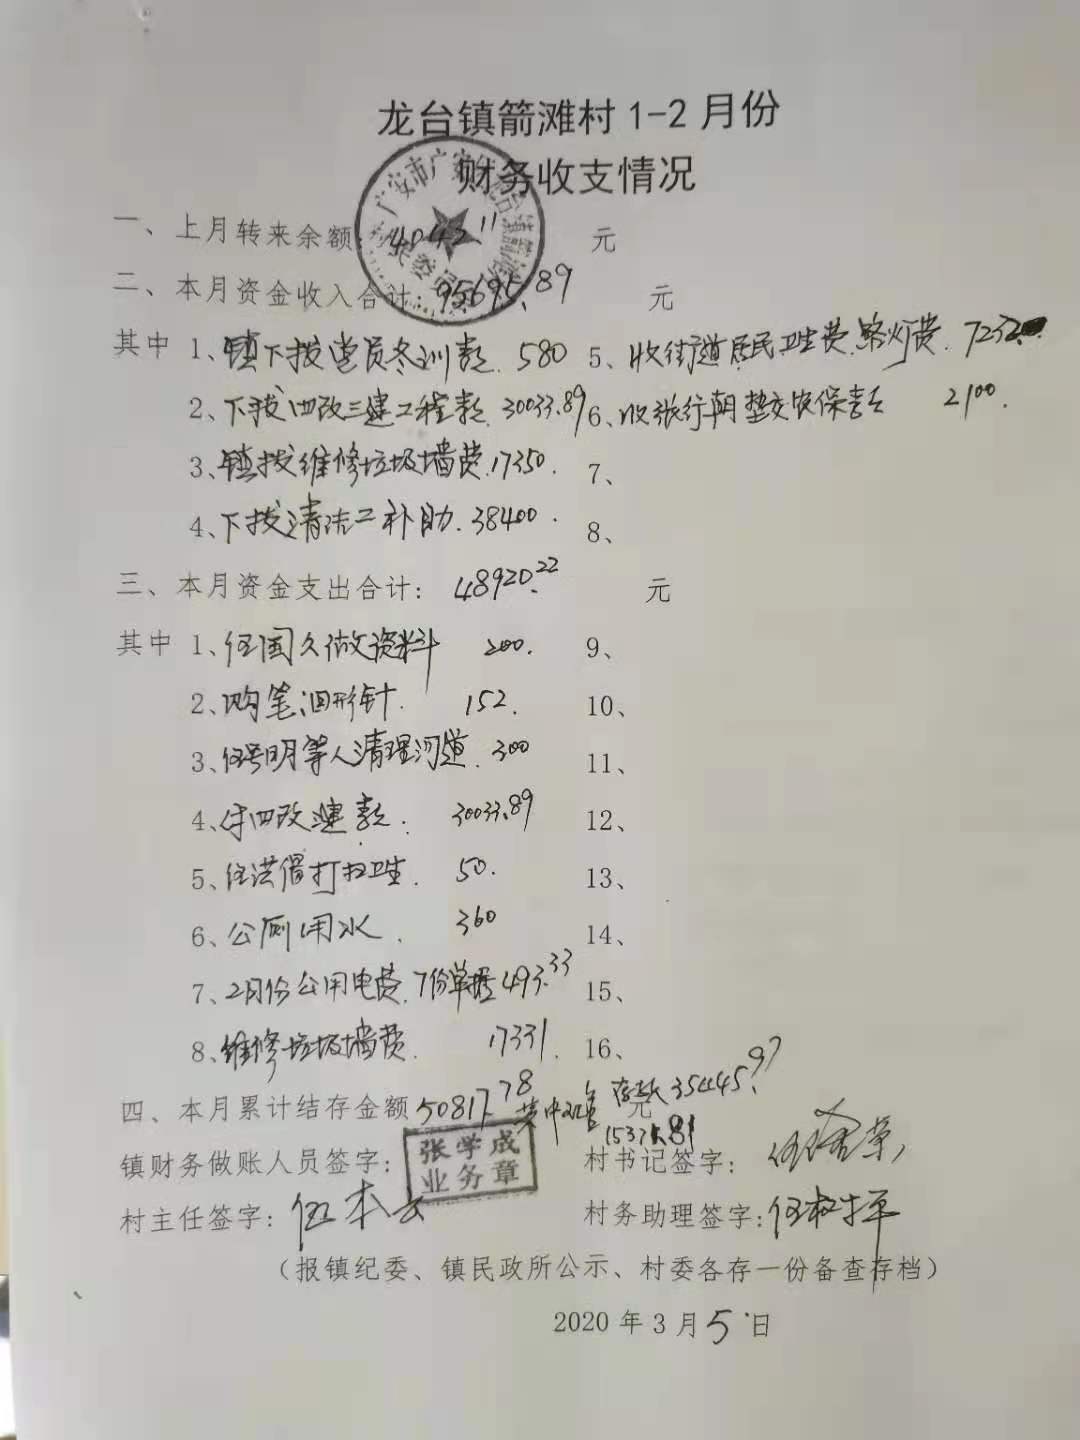 龙台镇箭滩村1-2月份
财务收支情况
一、上月转来余额:4042.11 元
二、本月资金收入合计:95695.89 元
其中 1、镇下拨党员冬训款.580 5、收街道居民卫生费.路灯费.7232
2、下拨四改三建工程款.30033.89 6、收张行朝垫交农保款 2100.
3、镇拨维修垃圾墙费.17350. 7、
4、下拨清洁工补助.38400. 8、
三、本月资金支出合计: 48920.22 元
其中 1、伍国久做资料 200. 9、
2、购笔.回形针. 152. 10、
3、明等人清理河道.300 11、
4、付四改建款. 30033.89 12、
5、伍洪儒打扫卫生. 50. 13、
6、公厕用水. 360 14、
7、2月份公用电费.7份单据493.33 15、
8、维修垃圾墙费. 17331. 16、
四、本月累计结存金额50817.78 其中现金 15371.81 存款35445.97 元
镇财务做账人员签字: 张学成 业务章 村书记签字:
村主任签字: 伍本 村务助理签字:伍
(报镇纪委、镇民政所公示、村委各存一份备查存档)
2020年3月5日